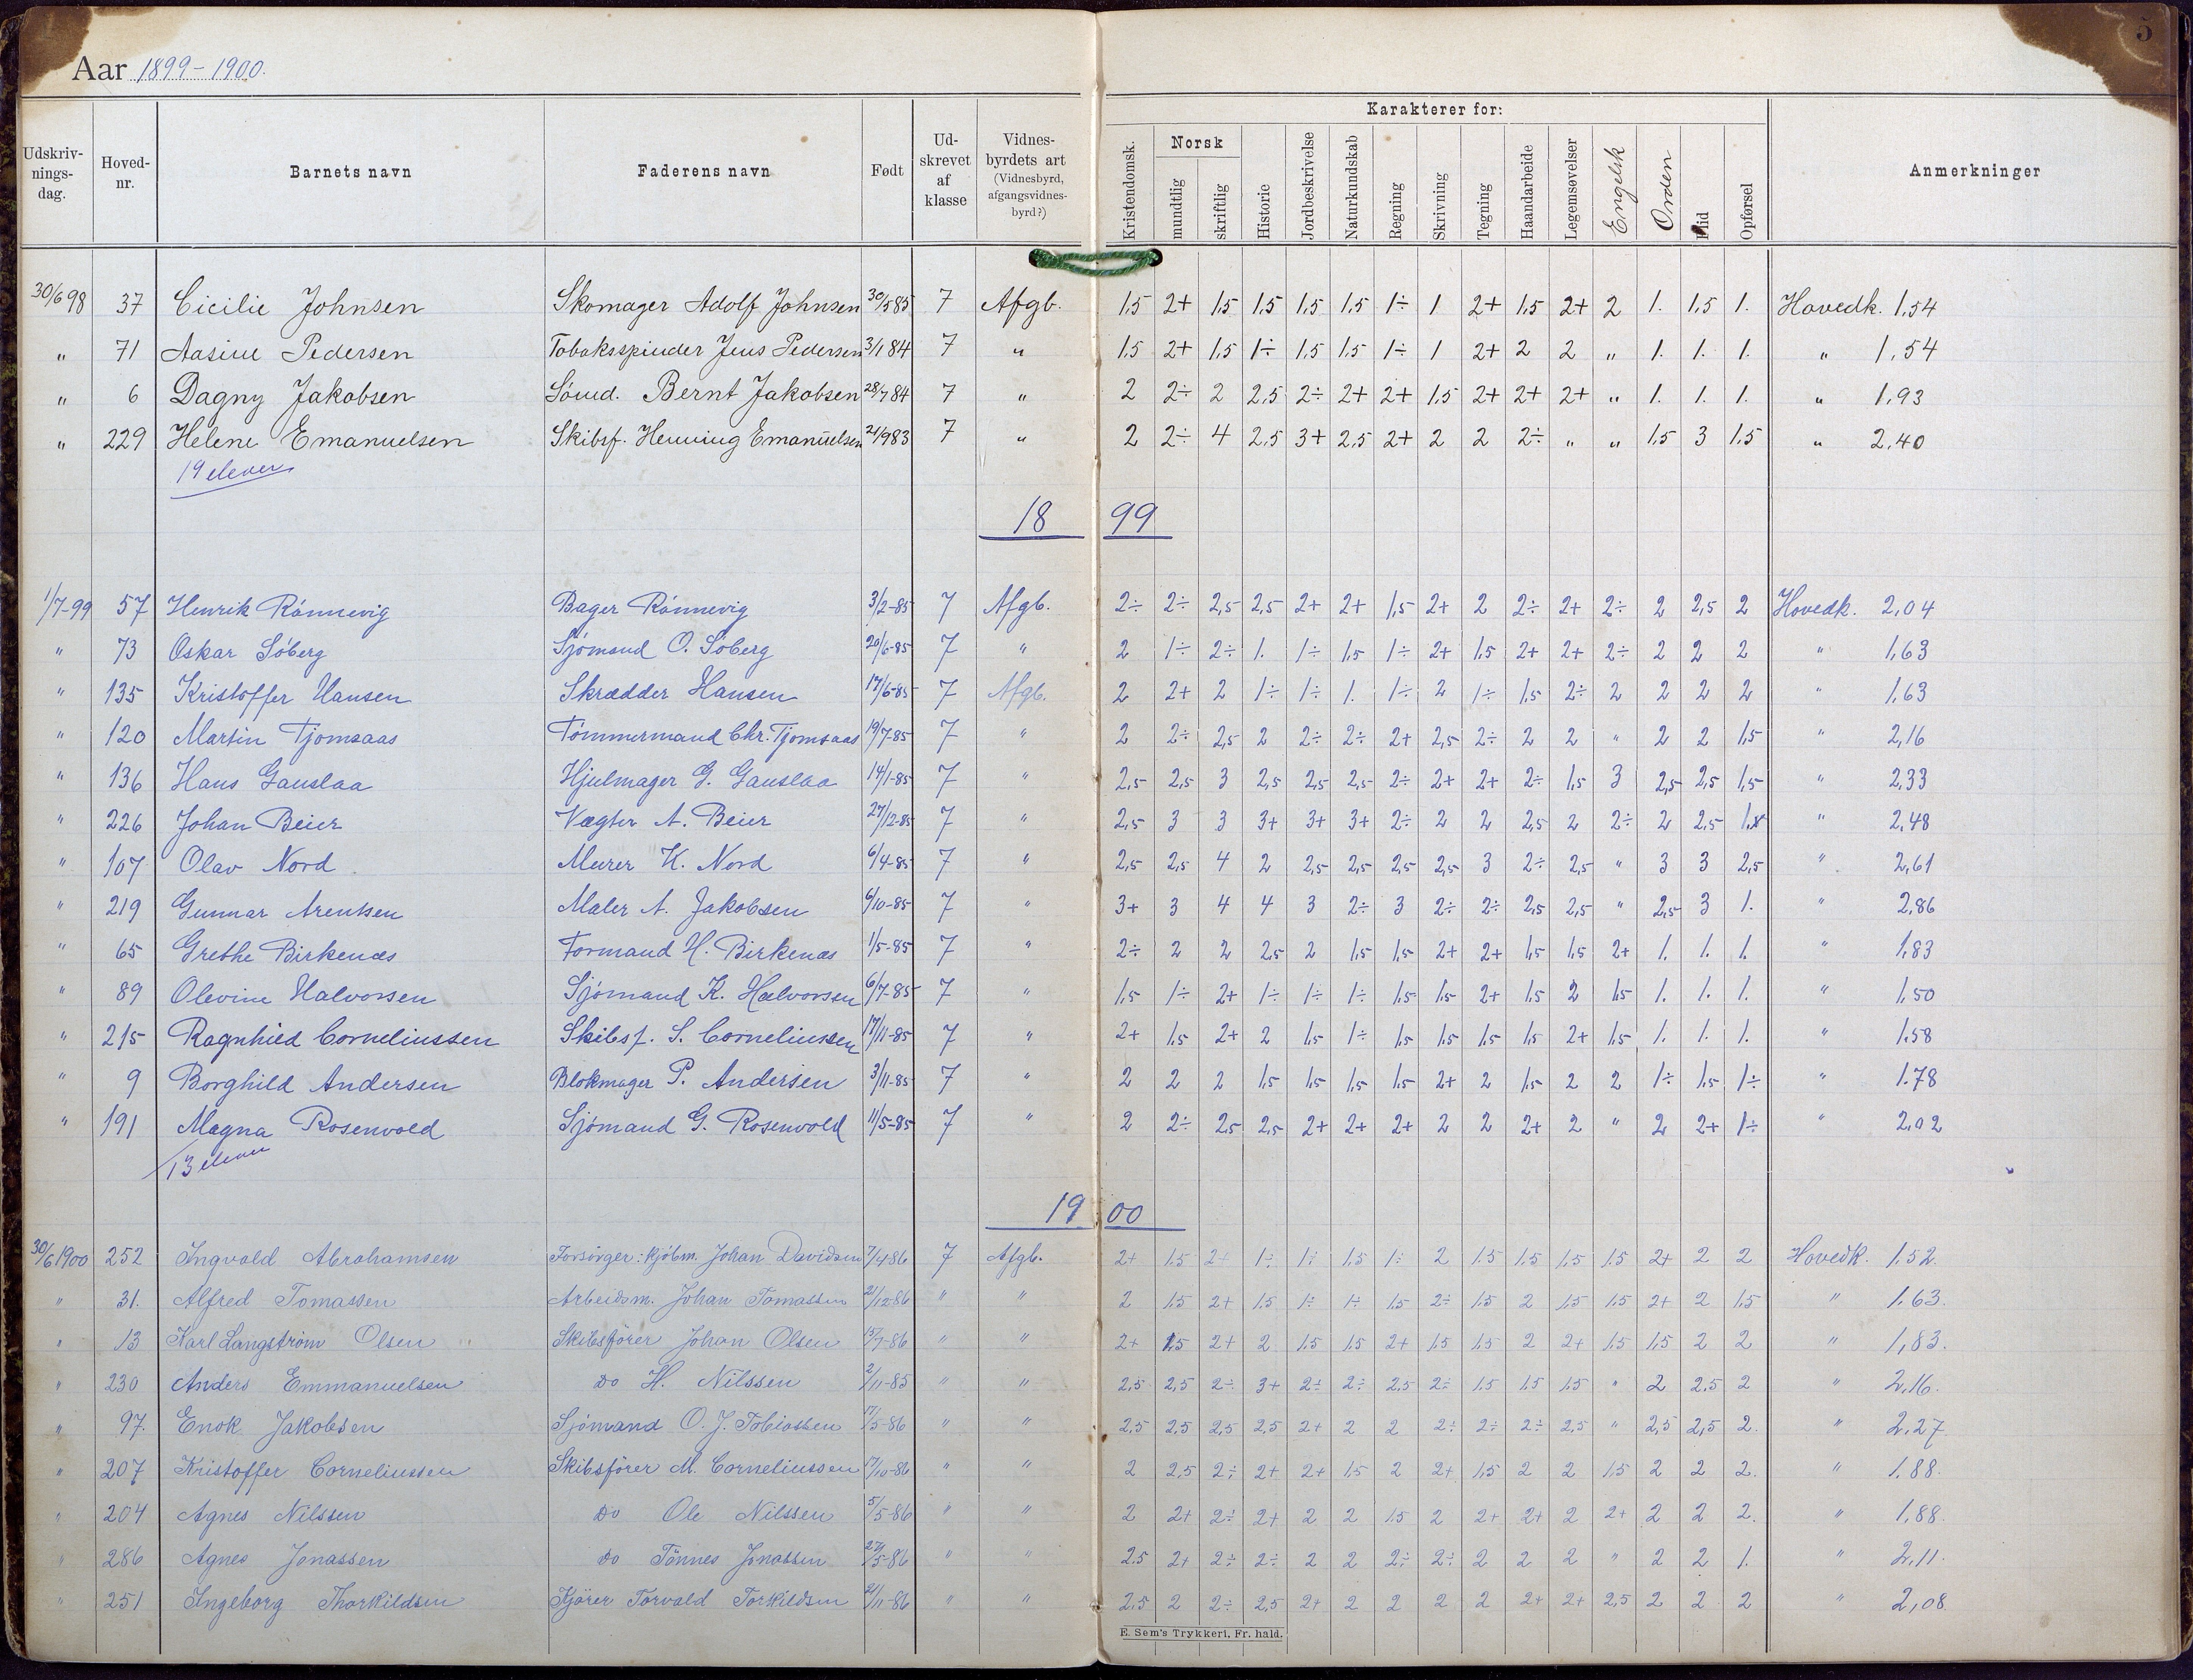 5
Aar 1899-1900.
Karakterer for:
Udskriv-nings-dag. Hoved-nr. Barnets navn Faderens navn Født Ud-skrevet af klasse Vidnes-byrdets art (Vidnesbyrd, afgangsvidnes-byrd?) Kristendomsk. Norsk mundtlig skriftlig Historie Jordbeskrivelse Naturkundskab Regning Skrivning Tegning Haandarbeide Legemsøvelser Engelsk Orden Flid Opførsel Anmerkninger
30/6 98 37 Cicilie Johnsen Skomager Adolf Johnsen 30/5 85 7 Afgb. 1,5 2+ 1,5 1,5 1,5 1,5 1÷ 1 2+ 1,5 2+ 2 1. 1,5 1. Hovedk. 1,54
" 71 Aasine Pedersen Tobaksspinder Jens Pedersen 3/1 84 7 " 1,5 2+ 1,5 1÷ 1,5 1,5 1÷ 1 2+ 2 2 " 1. 1. 1. " 1,54
" 6 Dagny Jakobsen Sømd. Bernt Jakobsen 28/7 84 7 " 2 2÷ 2 2,5 2÷ 2+ 2+ 1,5 2+ 2+ 2+ " 1. 1. 1. " 1,93
" 229 Helene Emanuelsen Skibsf. Henning Emanuelsen 21/9 83 7 " 2 2÷ 4 2,5 3+ 2,5 2+ 2 2 2÷ " " 1,5 3 1,5 " 2,40
19 elever
18 99
1/7-99 57 Henrik Rönnevig Bager Rönnevig 3/2-85 7 Afgb. 2÷ 2÷ 2,5 2,5 2+ 2+ 1,5 2+ 2 2÷ 2+ 2÷ 2 2,5 2 Hovedk. 2,04
" 73 Oskar Söberg Sjömand O. Söberg 20/6-85 7 " 2 1÷ 2÷ 1. 1÷ 1,5 1÷ 2+ 1,5 2+ 2+ 2÷ 2 2 2 " 1,63
" 135 Kristoffer Hansen Skrædder Hansen 17/6-85 7 Afgb. 2 2+ 2 1÷ 1÷ 1. 1÷ 2 1÷ 1,5 2÷ 2 2 2 2 " 1,63
" 120 Martin Tjomsaas Tömmermand Chr. Tjomsaas 19/7-85 7 " 2 2÷ 2,5 2 2÷ 2÷ 2+ 2,5 2÷ 2 2 " 2 2 1,5 " 2,16
" 136 Hans Gauslaa Hjulmager G. Gauslaa 14/1-85 7 " 2,5 2,5 3 2,5 2,5 2,5 2÷ 2+ 2+ 2÷ 1,5 3 2,5 2,5 1,5 " 2,33
" 226 Johan Beier Vægter A. Beier 27/12-85 7 " 2,5 3 3 3+ 3+ 3+ 2÷ 2 2 2,5 2 2÷ 2 2,5 " 2,48
" 107 Olav Nord Murer K. Nord 6/4-85 7 " 2,5 2,5 4 2 2,5 2,5 2,5 2,5 3 2÷ 2,5 " 3 3 2,5 " 2,61
" 219 Gunnar Arentsen Maler A. Jakobsen 6/10-85 7 " 3+ 3 4 4 3 2÷ 3 2÷ 2÷ 2,5 2,5 " 2,5 3 1. " 2,86
" 65 Grethe Birkenæs Formand H. Birkenæs 1/5-85 7 " 2÷ 2 2 2,5 2 1,5 1,5 2+ 2+ 1,5 1,5 2+ 1. 1. 1. " 1,83
" 89 Olevine Halvorsen Sjömand K. Halvorsen 6/7-85 7 " 1,5 1÷ 2+ 1÷ 1÷ 1÷ 1,5 1,5 2+ 1,5 2 1,5 1. 1. 1. " 1,50
" 215 Ragnhild Corneliussen Skibsf. S. Corneliussen 17/11-85 7 " 2+ 1,5 2+ 2 1,5 1÷ 1,5 1,5 1,5 1,5 2+ 1,5 1. 1. 1. " 1,58
" 9 Borghild Andersen Blokmager P. Andersen 3/11-85 7 " 2 2 2 1,5 1,5 1,5 1,5 2+ 2 1,5 2 2 1÷ 1,5 1÷ " 1.78
" 191 Magna Rosenvold Sjömand G. Rosenvold 11/5-85 7 " 2 2÷ 2,5 2,5 2+ 2+ 2+ 2 2 2+ 2 " 2 2+ 1÷ " 2,02
13 elever
19 00
30/6 1900 252 Ingvald Abrahamsen Forsörger: kjöbm. Johan Davidsen 7/4 86 7 Afgb. 2+ 1.5 2+ 1÷ 1÷ 1.5 1÷ 2 1.5 1.5 1.5 1.5 2+ 2 2 Hovedk. 1.52
" 31. Alfred Tomassen Arbeidsm. Johan Tomassen 21/12-86 " " 2 1.5 2+ 1.5 1÷ 1÷ 1.5 2÷ 1.5 2 1.5 1.5 2+ 2 1.5 " 1.63.
" 13 Karl Langström Olsen Skibsförer Johan Olsen 15/7-86 " " 2+ 1.5 2+ 2 1.5 1.5 2+ 1.5 1.5 2 2+ 1.5 1.5 2 2 " 1,83.
" 230 Anders Emmanuelsen Do H. Nilssen 2/11-85 " " 2.5 2,5 2÷ 3+ 2÷ 2÷ 2.5 2÷ 1.5 1.5 1.5 " 2 2.5 2 " 2,16.
" 97. Enok Jakobsen Sjömand O. J. Tobiassen 17/5-86 " " 2,5 2.5 2,5 2,5 2+ 2 2 2÷ 2÷ 2÷ 2,5 " 2,5 2,5 2. " 2,27
" 207 Kristoffer Corneliussen Skibsförer M. Corneliussen 17/10-86 " " 2 2,5 2÷ 2+ 2+ 1.5 2 2+ 1,5 2 2 1.5 2 2 2. " 1.88.
" 204 Agnes Nilssen Do Ole Nilssen 5/5-86 " " 2 2+ 2÷ 2+ 2 2 1.5 2 2+ 2+ 2 2+ 2 2 2. " 1,88.
" 286 Agnes Jonassen Do Tönnes Jonassen 27/5-86 " " 2.5 2+ 2÷ 2÷ 2 2 2÷ 2÷ 2 2 2 " 2 2 1. " 2,11.
" 251 Ingeborg Thorkildsen Kjörer Torvald Torkildsen 21/11-86 " " 2.5 2 2÷ 2,5 2+ 2 2 2 2 2+ 2+ 2,5 2 2 2 " 2,08
E. Sem's Trykkeri, Fr. hald.